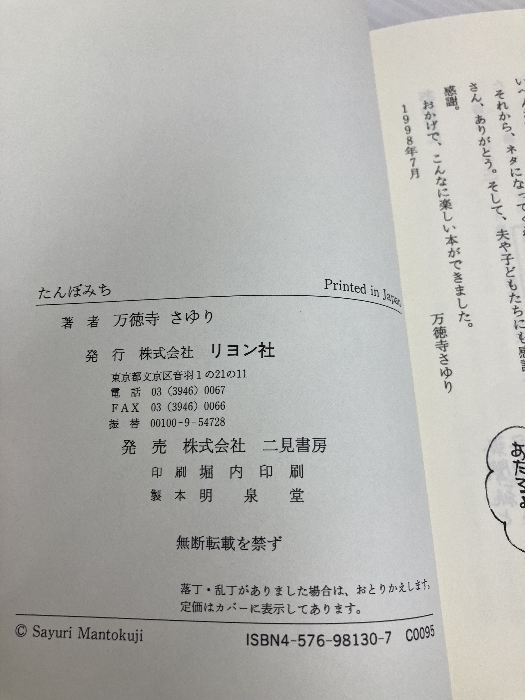 それから、ネタになって
さん、ありがとう。そして、夫や子どもたちにも感謝
感謝。
おかげで、こんなに楽しい本ができました。
1998年7月
万徳寺さゆり
たんぽみち
Printed in Japan
著者 万徳寺 さゆり
発行 株式会社 リヨン社
東京都文京区音羽1の21の11
電話 03(3946)0067
FAX 03(3946)0066
振替 00100-9-54728
発売 株式会社 二見書房
印刷 堀内印刷
製本 明泉堂
無断転載を禁ず
落丁・乱丁がありました場合は、おとりかえします。
定価はカバーに表示してあります。
© Sayuri Mantokuji
ISBN4-576-98130-7 C0095